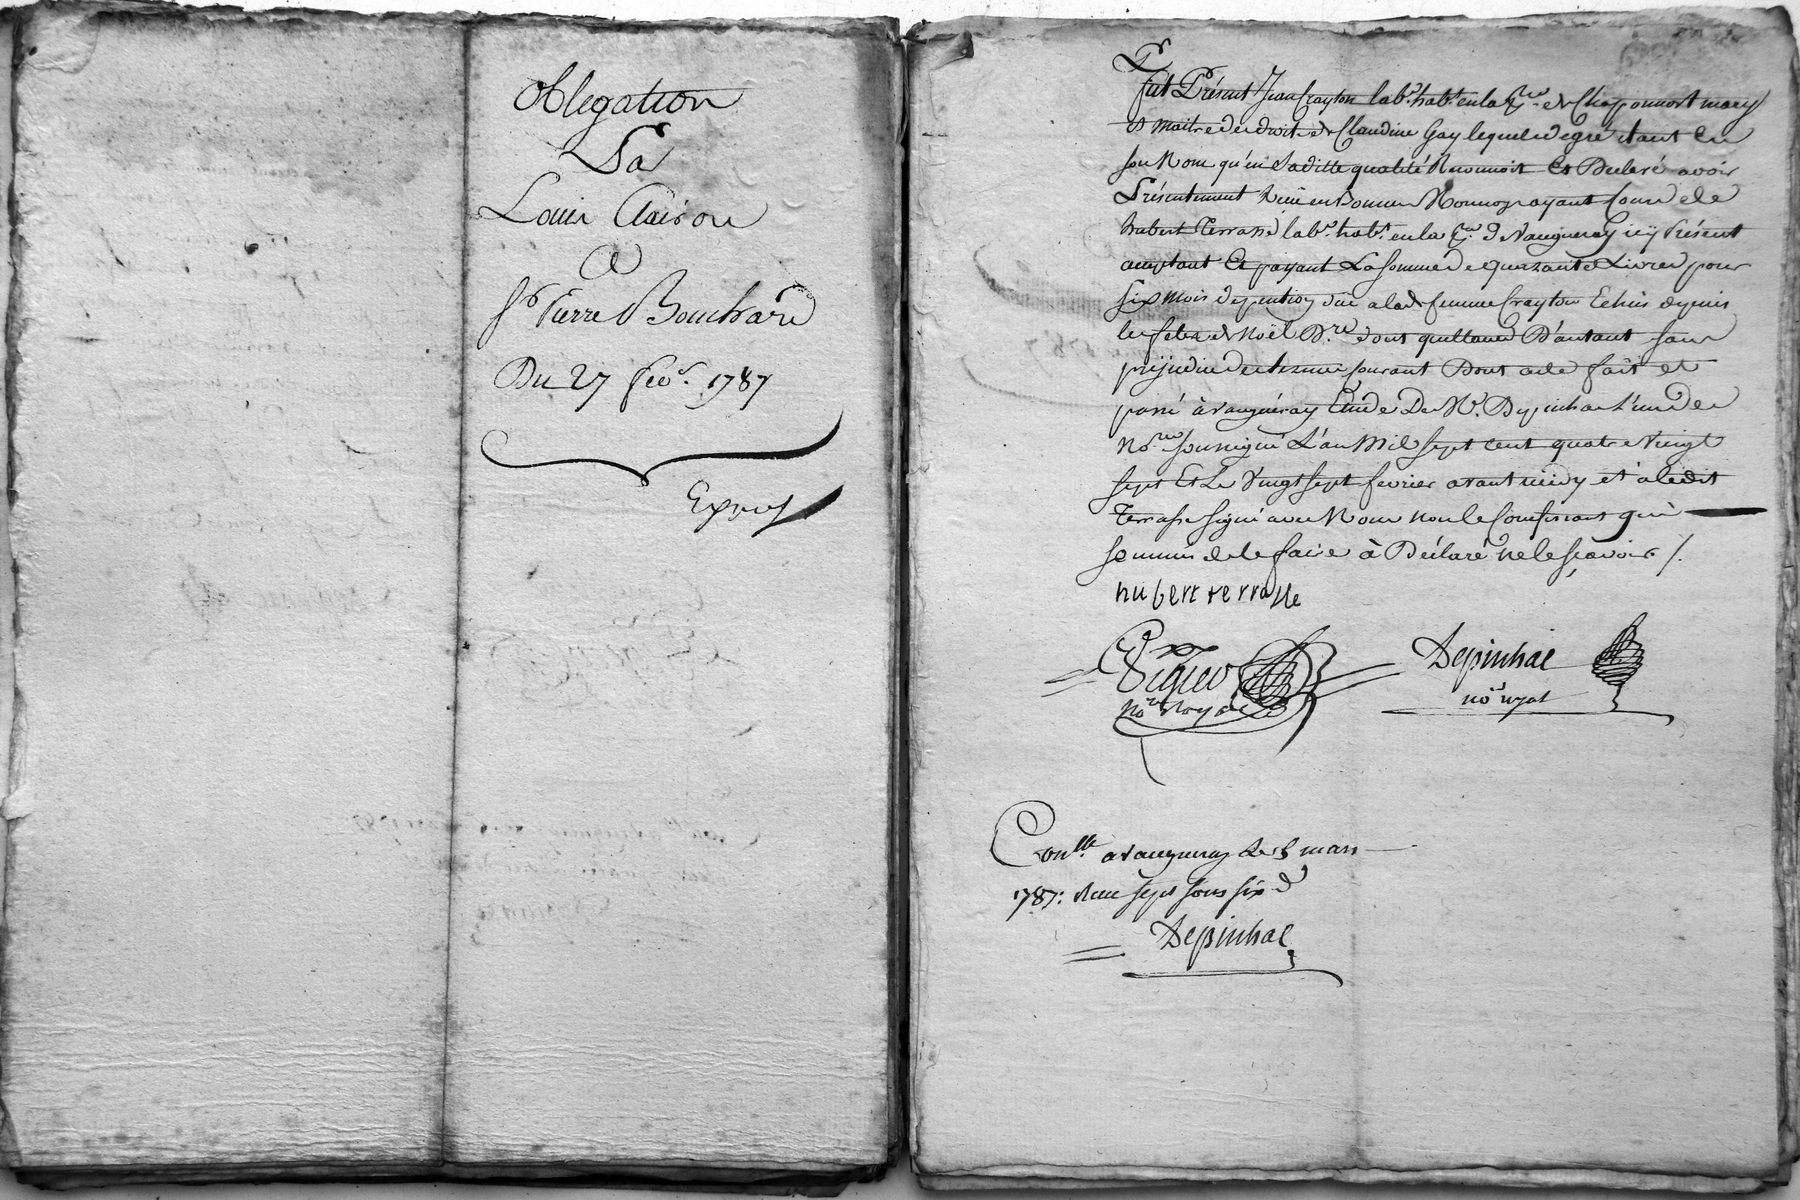 Oblegation
Da
Louis Clairon
A
Sr Pierre Bouchard
Du 27 fevr. 1787
Expiez
Pr
fut Présent Jean Crayton labr. habt. en la psse de Chaponnost mary
et maitre des droits de Claudine Gay lequel de gré tant en
son Nom qu'en Saditte qualité Reconnoit Et Declaré avoir
Présentement Reçu en bonnes Monnoy ayant Cours de
hubert Terrasse labr. habt. en la psse de Vaugneray icy Présent
acceptant Et payant La Somme de quarante Livres pour
Six Mois de pention due a lade femme Crayton Echus depuis
les fetes de Noël Dre dont quittance D'autant sans
préjudice du terme courant Dont acte fait et
passé à vaugneray Etude De Me. Depinhac l'un des
Nores soussigné L'an Mil sept cent quatre Vingt
sept Et Le Vingt sept fevrier avant midy et à ledit
Terrasse signé avec Nous non le Confessant qui
sommés de le faire à Déclaré ne le sçavoir /.
hubert terrasse
nore Royal
Depinhac
nore royal
Conlle. a vaugneray Le 5 mars
1787: Reçu sept sous six d
Depinhac